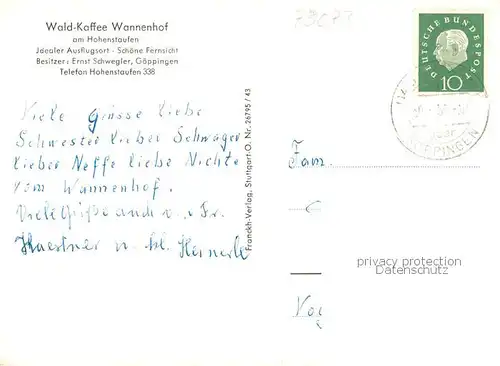 Wald-Kaffee Wannenhof
am Hohenstaufen
Jdealer Ausflugsort - Schöne Fernsicht
Besitzer: Ernst Schwegler, Göppingen
Telefon Hohenstaufen 338
73073
DEUTSCHE BUNDESPOST
10
GÖPPINGEN
Viele Grüsse liebe
Schwester lieber Schwager
lieber Neffe liebe Nichte
vom Wannenhof.
Viele Grüße auch v. Fr.
Haertner u. kl. Heinerle
Franckh-Verlag, Stuttgart-O. Nr. 26795 / 43
Fam.
privacy protection
Datenschutz